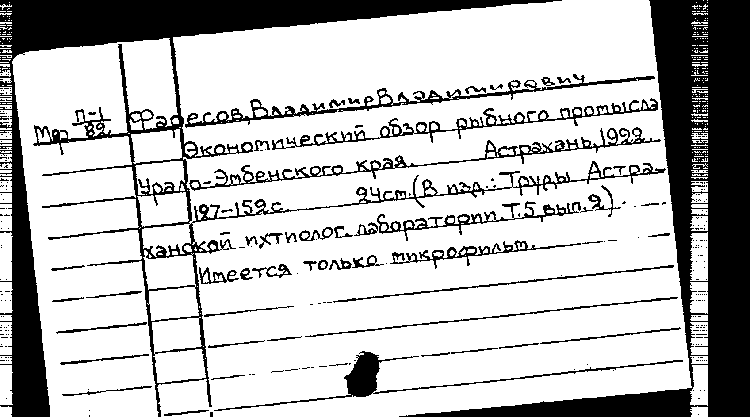 Мф П-1/82 Фаресов, Владимир Владимирович
Экономический обзор рыбного промысла
Урало-Эмбенского края. Астрахань, 1922.
127-152 с. 24 см. (В изд.: Труды Астра-
ханской ихтиолог. лаборатории. Т. 5, вып. 2).
Имеется только микрофильм.